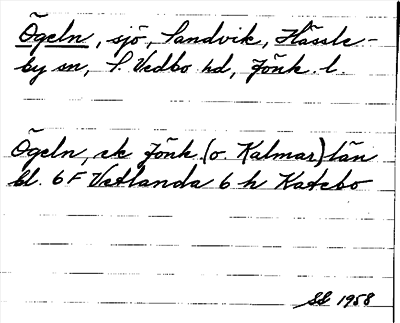 Ögeln, sjö, Sandvik, Hässle-
by sn, S. Vedbo hd, Jönk. l.
Ögeln, ek Jönk. (o. Kalmar) län
bl. 6 F Vetlanda 6 h Katebo
SG 1958